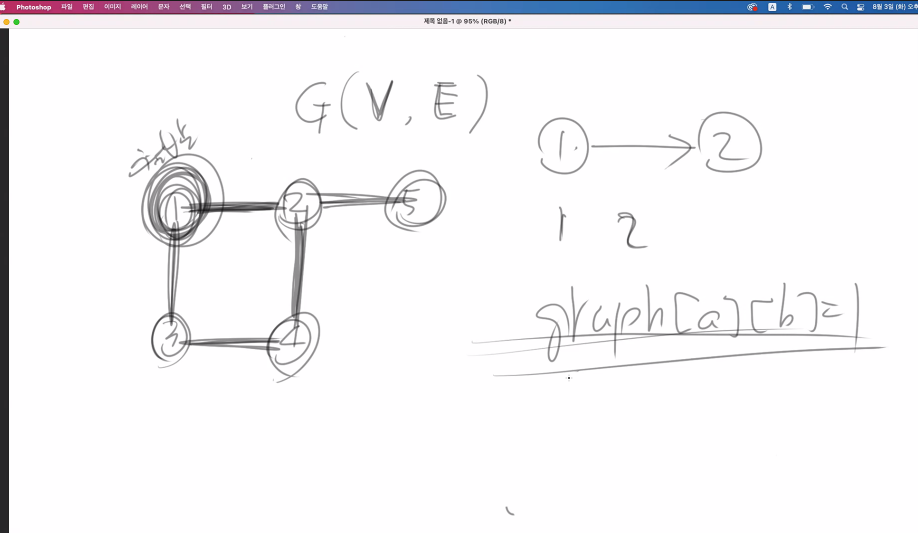 Photoshop 파일 편집 이미지 레이어 문자 선택 필터 3D 보기 플러그인 창 도움말 A 8월 3일 (화) 오후
제목 없음-1 @ 95% (RGB/8) *
G(V, E)
1 → 2
1 2 5
1 2
3 4
graph[a][b]=1